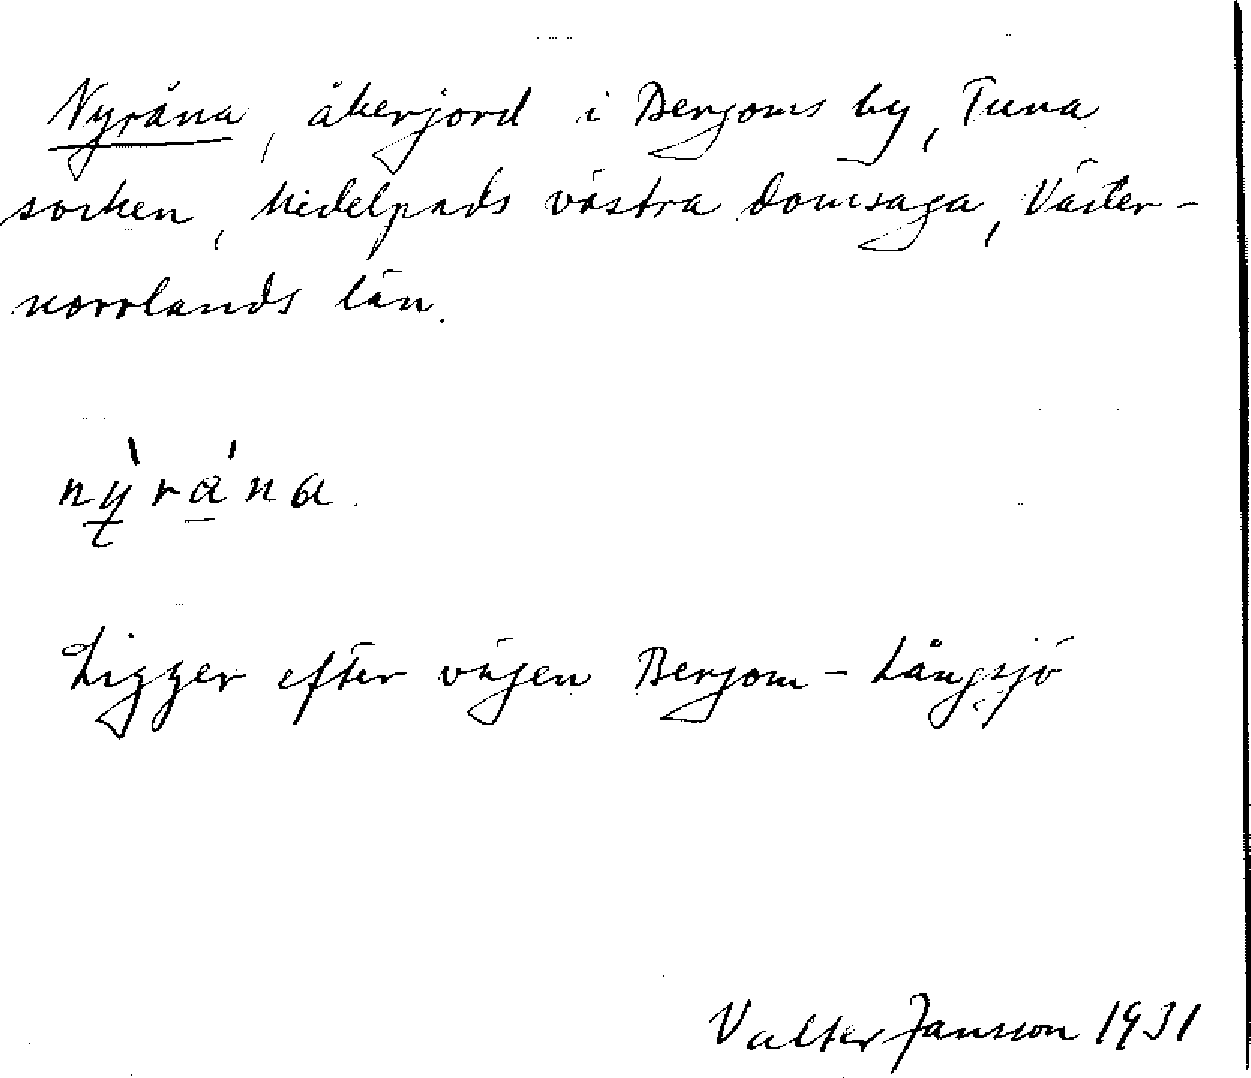 Nyråna, åkerjord i Bergoms by, Tuna
socken, Medelpads västra domsaga, Väster-
norrlands län.
nỳrána.
Ligger efter vägen Bergom - Långsjö
Valter Jansson 1931